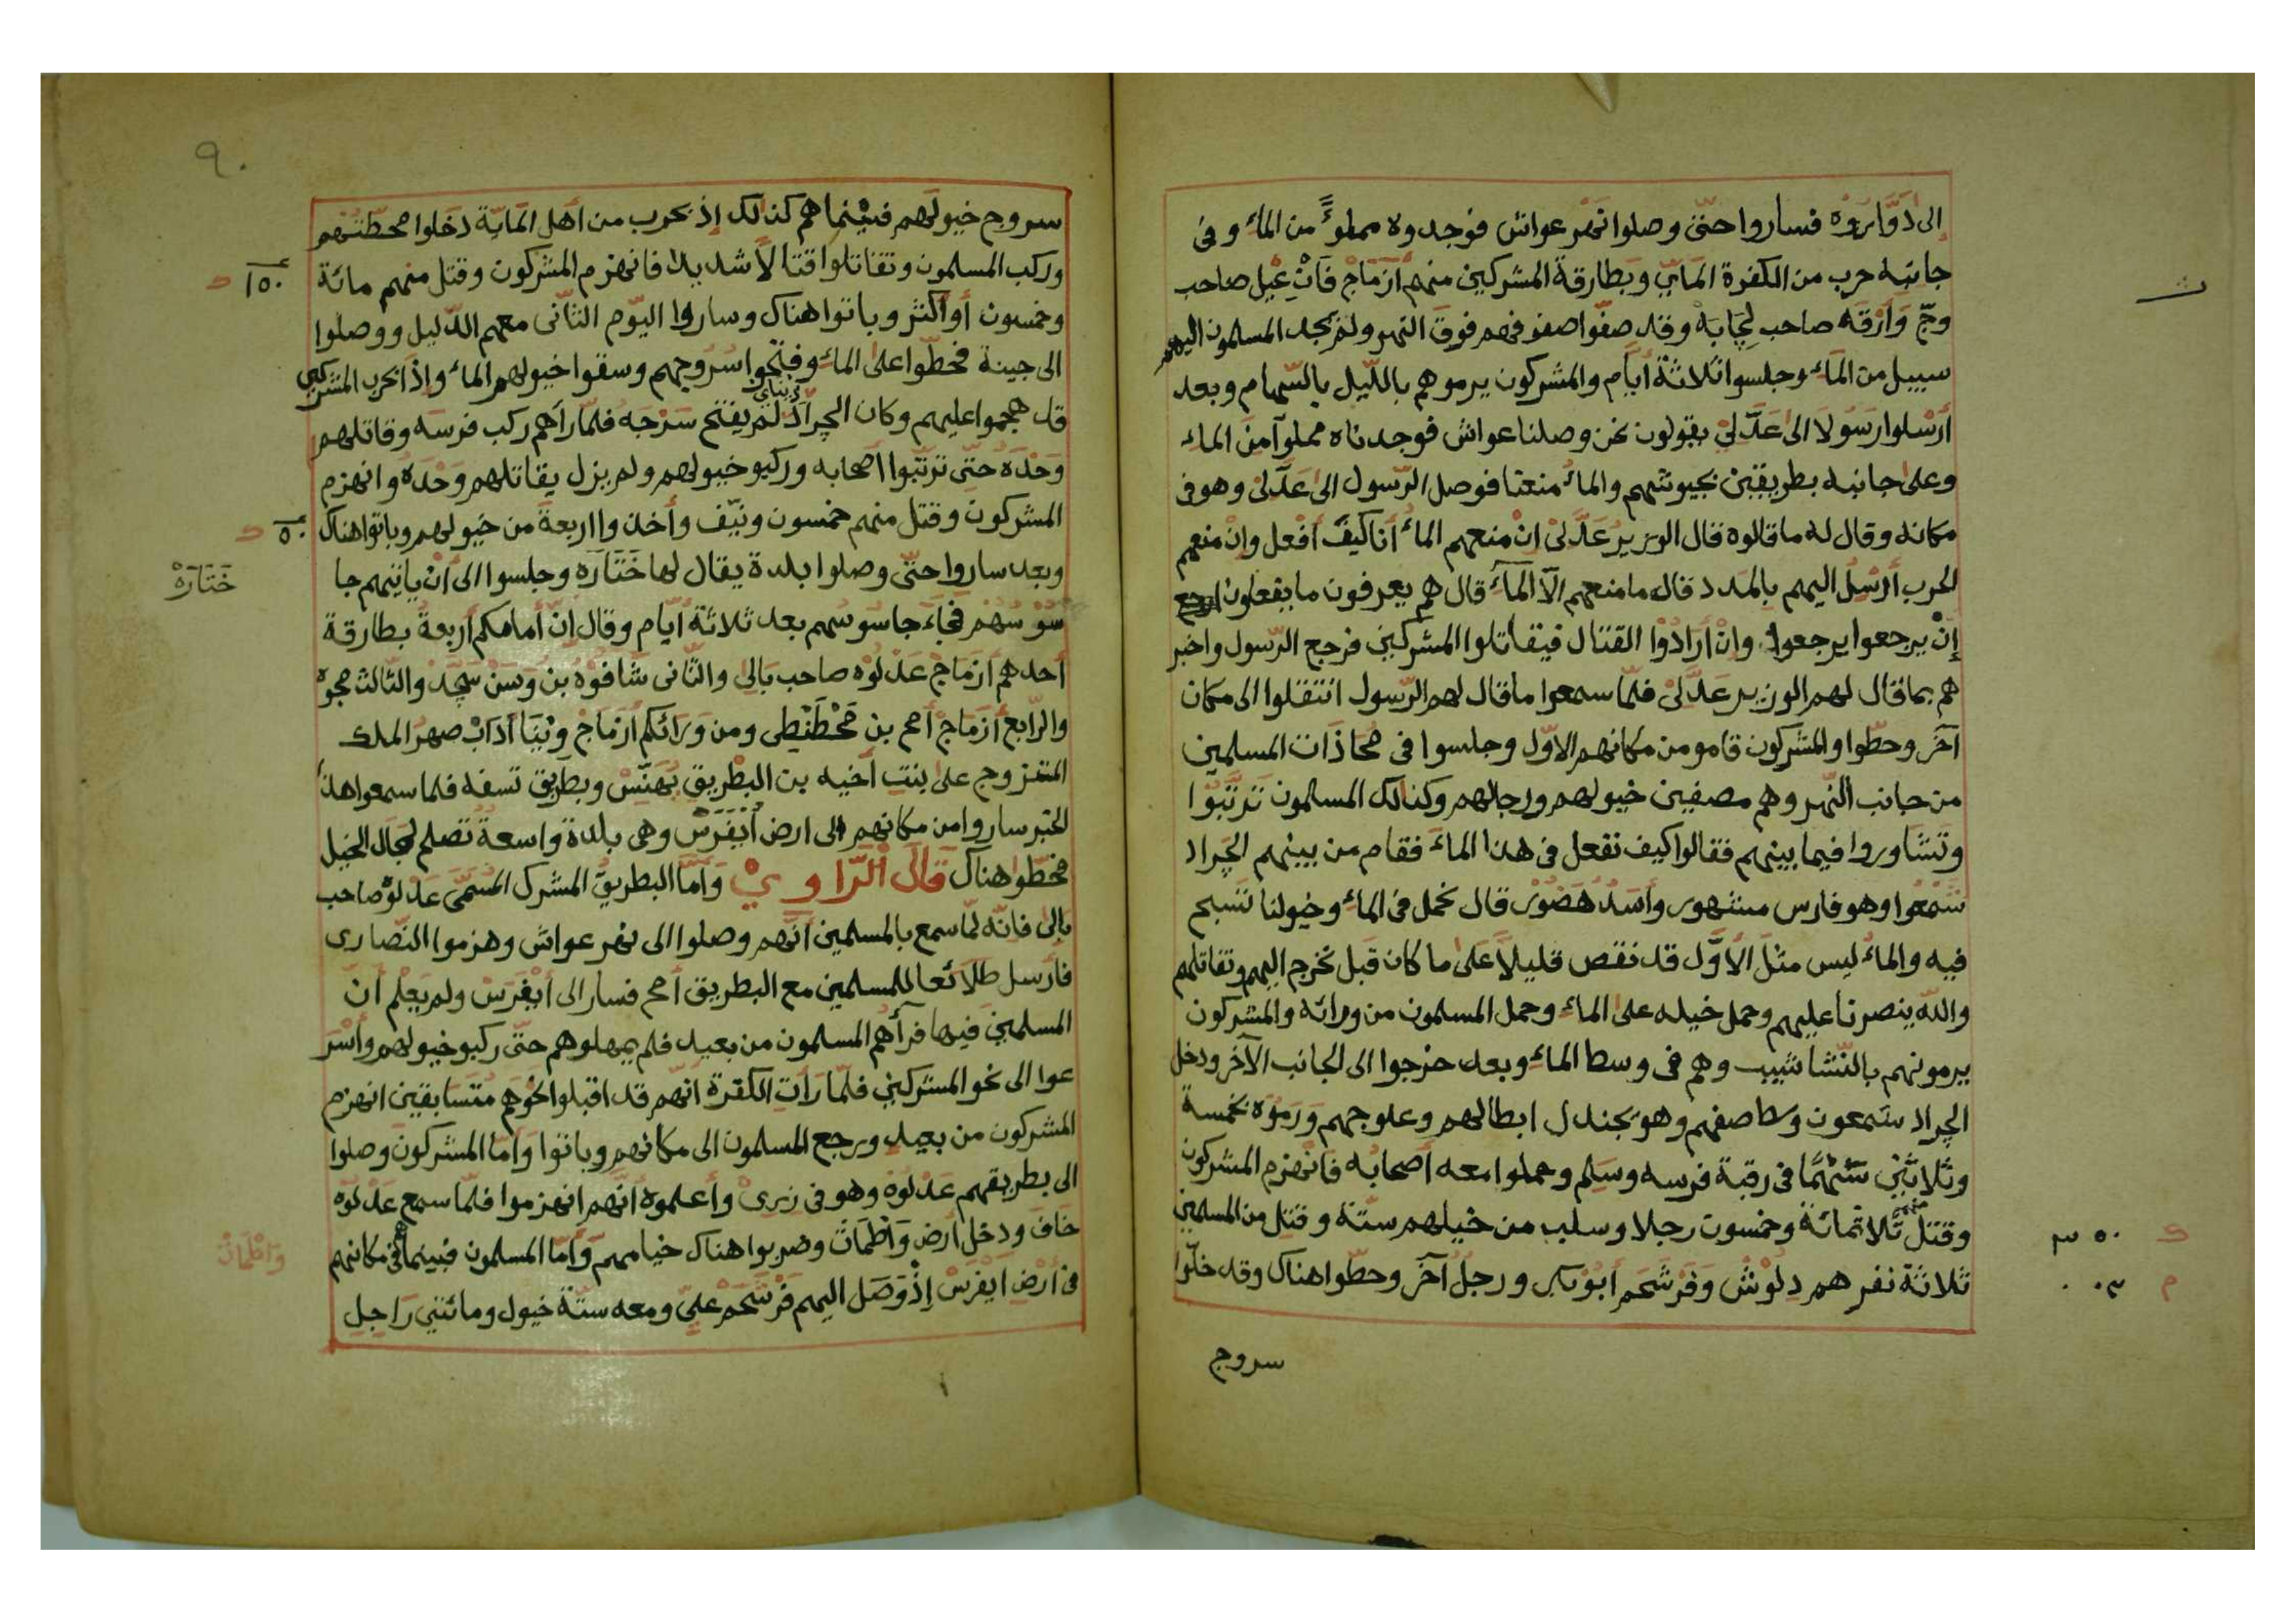 إلى دَوَّارَوْه فساروا حتّى وصلوا نهْر عواش فوجدوه مملوءً من الماء وفى
جانبه حرب من الكفرة المَايَ وبَطارقة المشركين منهم أَزْمَاجْ فَانِْ عِيْل صاحب
وجّ وَأَرْقَه صاحب لِجَابَهْ وقد صفّوا صفوفهم فوق النهر ولم يجد المسلمون اليهم
سبيل من الماء وجلسوا ثلاثة أيّام والمشركون يرموهم باللّيل بالسّهام وبعد
أرْسلوا رسَولَا الى عَدَّلىْ يقولون نحن وصلنا عواش فوجدناه مملوآ من الماء
وعلى جانبه بطريقين بجيوشهم والماءُ منعنا فوصل الرّسول الى عَدَّلىْ وهو فى
مكانه وقال له ما قالوه قال الوزيرُ عَدَّلىْ انْ منعهم الماءُ أنا كيفَ أفْعل وانْ منعهم
الحرب أرْسِلُ اليهم بالمَدد قال ما منعهم الآ المآءُ قال هم يعرفون ما يفعلون
إنْ يرجعوا يرجعوا وانْ أرَادُوْا القتال فيتقاتلوا المشركين فرجع الرّسول واخبر
هم بما قال لهم الوزير عَدَّلىْ فلمّا سمعوا ما قال لهم الرّسول انتقلوا الى مكان
آخَر وحطّوا والمشركون قامو من مكانهم الاوّل وجلسوا فى مُحَاذَات المسلمين
من جانب النّهر وهم مصفين خيولهم ورجالهم وكذالك المسلمون تَرتَّبُوا
وتَشَاوروا فيما بينهم فقالوا كيف نفعل فى هذا الماءَ فقام من بينهم الجَراد
شَمْعُوا وهو فارس مشهور وأسدُ هَضُوْر قال نحمل فى الماءِ وخيولنا تسَبح
فيه والماءُ ليس مثلَ الأوّل قد نقص قليلاً على ما كان قبل نخرج اليهم ونقاتلهم
والله ينصرنا عليهم وحمل خيله على الماءِ وحمل المسلمون من ورائه والمشركون
يرمونهم بالنّشاشيب وهم فى وسط الماءِ وبعد خرجوا الى الجانب الآخر ودخل
الجراد سَمعون وسط صفهم وهو يجندل ابطالهم وعلوجهم وَرَمُوَه بخمسة
وثلاثين سَهْمًا فى رقبة فرسه وسَلِم وحملوا معه أصحابُه فانْهزم المشركون
وقتل منهم ثلاثمائة وخمسون رجلا وسلب من خيلهم ستّة وقتل من المسلمين
ثلاثة نفر هم دِلُوْش وَفَرشَحَم أبُوْبكر ورجلُ آخَر وحطّوا هناك وقد خلّوا
٣٥٠
سروج
٩٠
سروج خيولهم فبيْنما هم كذالك إذ بحرب من أهل المَايَة دخلوا محطّتهم
وركب المسلمون وتقاتلوا قتالاً شديدا فانهزم المشركون وقتل منهم مائة
وخمسون أو أكثر وباتوا هناك وساروا اليوم الثّانى معهم الدّليل ووصلوا
الى جينة فحطّوا على الماءِ وفتحوا سُرُوجهم وسقوا خيولهم الماءَ واذا بحرب المشركين
قد هجموا عليهم وكان الجراد لم يفتح سَرْجَه فلمّا رأهم ركب فرسَه وقاتلهم
وَحْدَه حتّى ترتّبوا أصحابه وركبو خيولهم ولم يزل يقاتلهم وَحْدَه وانهزم
المشركون وقتل منهم خمسون ونيّف وأخذوا اربعةً من خيولهم وباتوا هناك
وبعد ساروا حتّى وصلوا بلدة يقال لها خَتَارَه وجلسوا الى أنْ ياتيهم جا
سُوْسُهُمْ فجاءَ جاسُوسُهم بعد ثلاثة أيّام وقال انّ أمامكم أربعةُ بطارقة
أحدهم أزمَاجْ عَدْلُوْه صاحب بَالى والثّانى شَافُوْهْ بنُ وسَنْ سَجَّدْ والثّالث مجوه
والرّابع أزمَاجْ أمح بن مَخْطَنْطِى ومن وَرَائكم أزْمَاجْ وِنَّيا أدَابْ صهرُ الملك
المتزوج على بنتِ أخيه بن البِطْريق يُهَنّسْ وبطريق تسفه فلما سمعوا هذا
الخبر ساروا من مكانهم الى ارض أَيْفَرَسْ وهى بلدة واسعةُ تصلح لمجال الخيل
فحطّوا هناك قَالَ الرَّاوِيْ وَأمَّا البطريقُ المشرك المُسَمَّى عَدْلُوْه صاحب
بالى فانّه لمّا سمع بالمسلمين أنَّهم وصلوا الى نهر عواش وهزموا النّصارى
فأرسل طَلَائعا للمسلمين مع البطريق أمح فسار الى أَيْفَرَسْ ولم يَعْلم أنّ
المسلمين فيها فرآهم المسلمون من بعيد فلم يمهلوهم حتّى ركبو خيولهم وأسْرَ
عوا الى نحو المشركين فلمّا رَأَتِ الكفرة انّهم قد اقبلوا نحوَهم مُتَسَابقين انهزم
المشركون من بعيد ورجع المسلمون الى مكانهم وباتوا وَأمّا المشركون وصلوا
الى بطريقهم عَدْلُوْهْ وهو فى زيرى وأعلموهُ انّهم انهزموا فلمّا سمع عَدْلُوْه
خافَ ودخل أرض وَاظِمَات وضربوا هناك خيامهم وَأمّا المسلمون فبينما هم فى مكانهم
فى أرْضِ ايفَرَسْ إذْ وَصَل اليهم فَرْشَحَمْ عَلىّ ومعه ستّة خيول ومائتى رَاجِل
١٥٠
٥٠
خَتَارَهْ